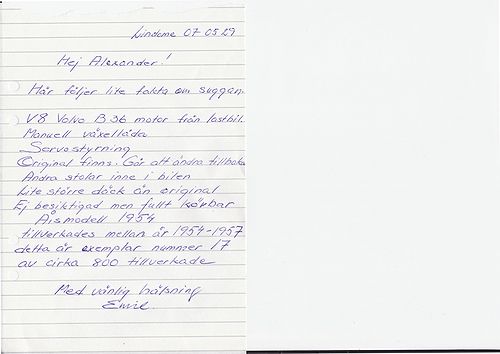 Lindome 07 05 29
Hej Alexander!
Här följer lite fakta om suggan.
V8 Volvo B36 motor från lastbil.
Manuell växellåda
Servostyrning
Original finns. Går att ändra tillbaka
Andra stolar inne i bilen
Lite större däck än original
Ej besiktigad men fullt körbar
Årsmodell 1954
tillverkades mellan år 1954-1957
detta är exemplar nummer 17
av cirka 800 tillverkade
Med vänlig hälsning
Emil